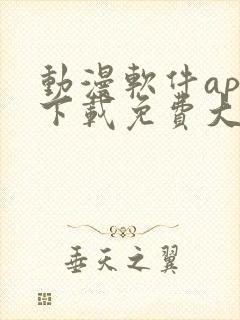 動漫軟件ap
下載免費大
垂天之翼